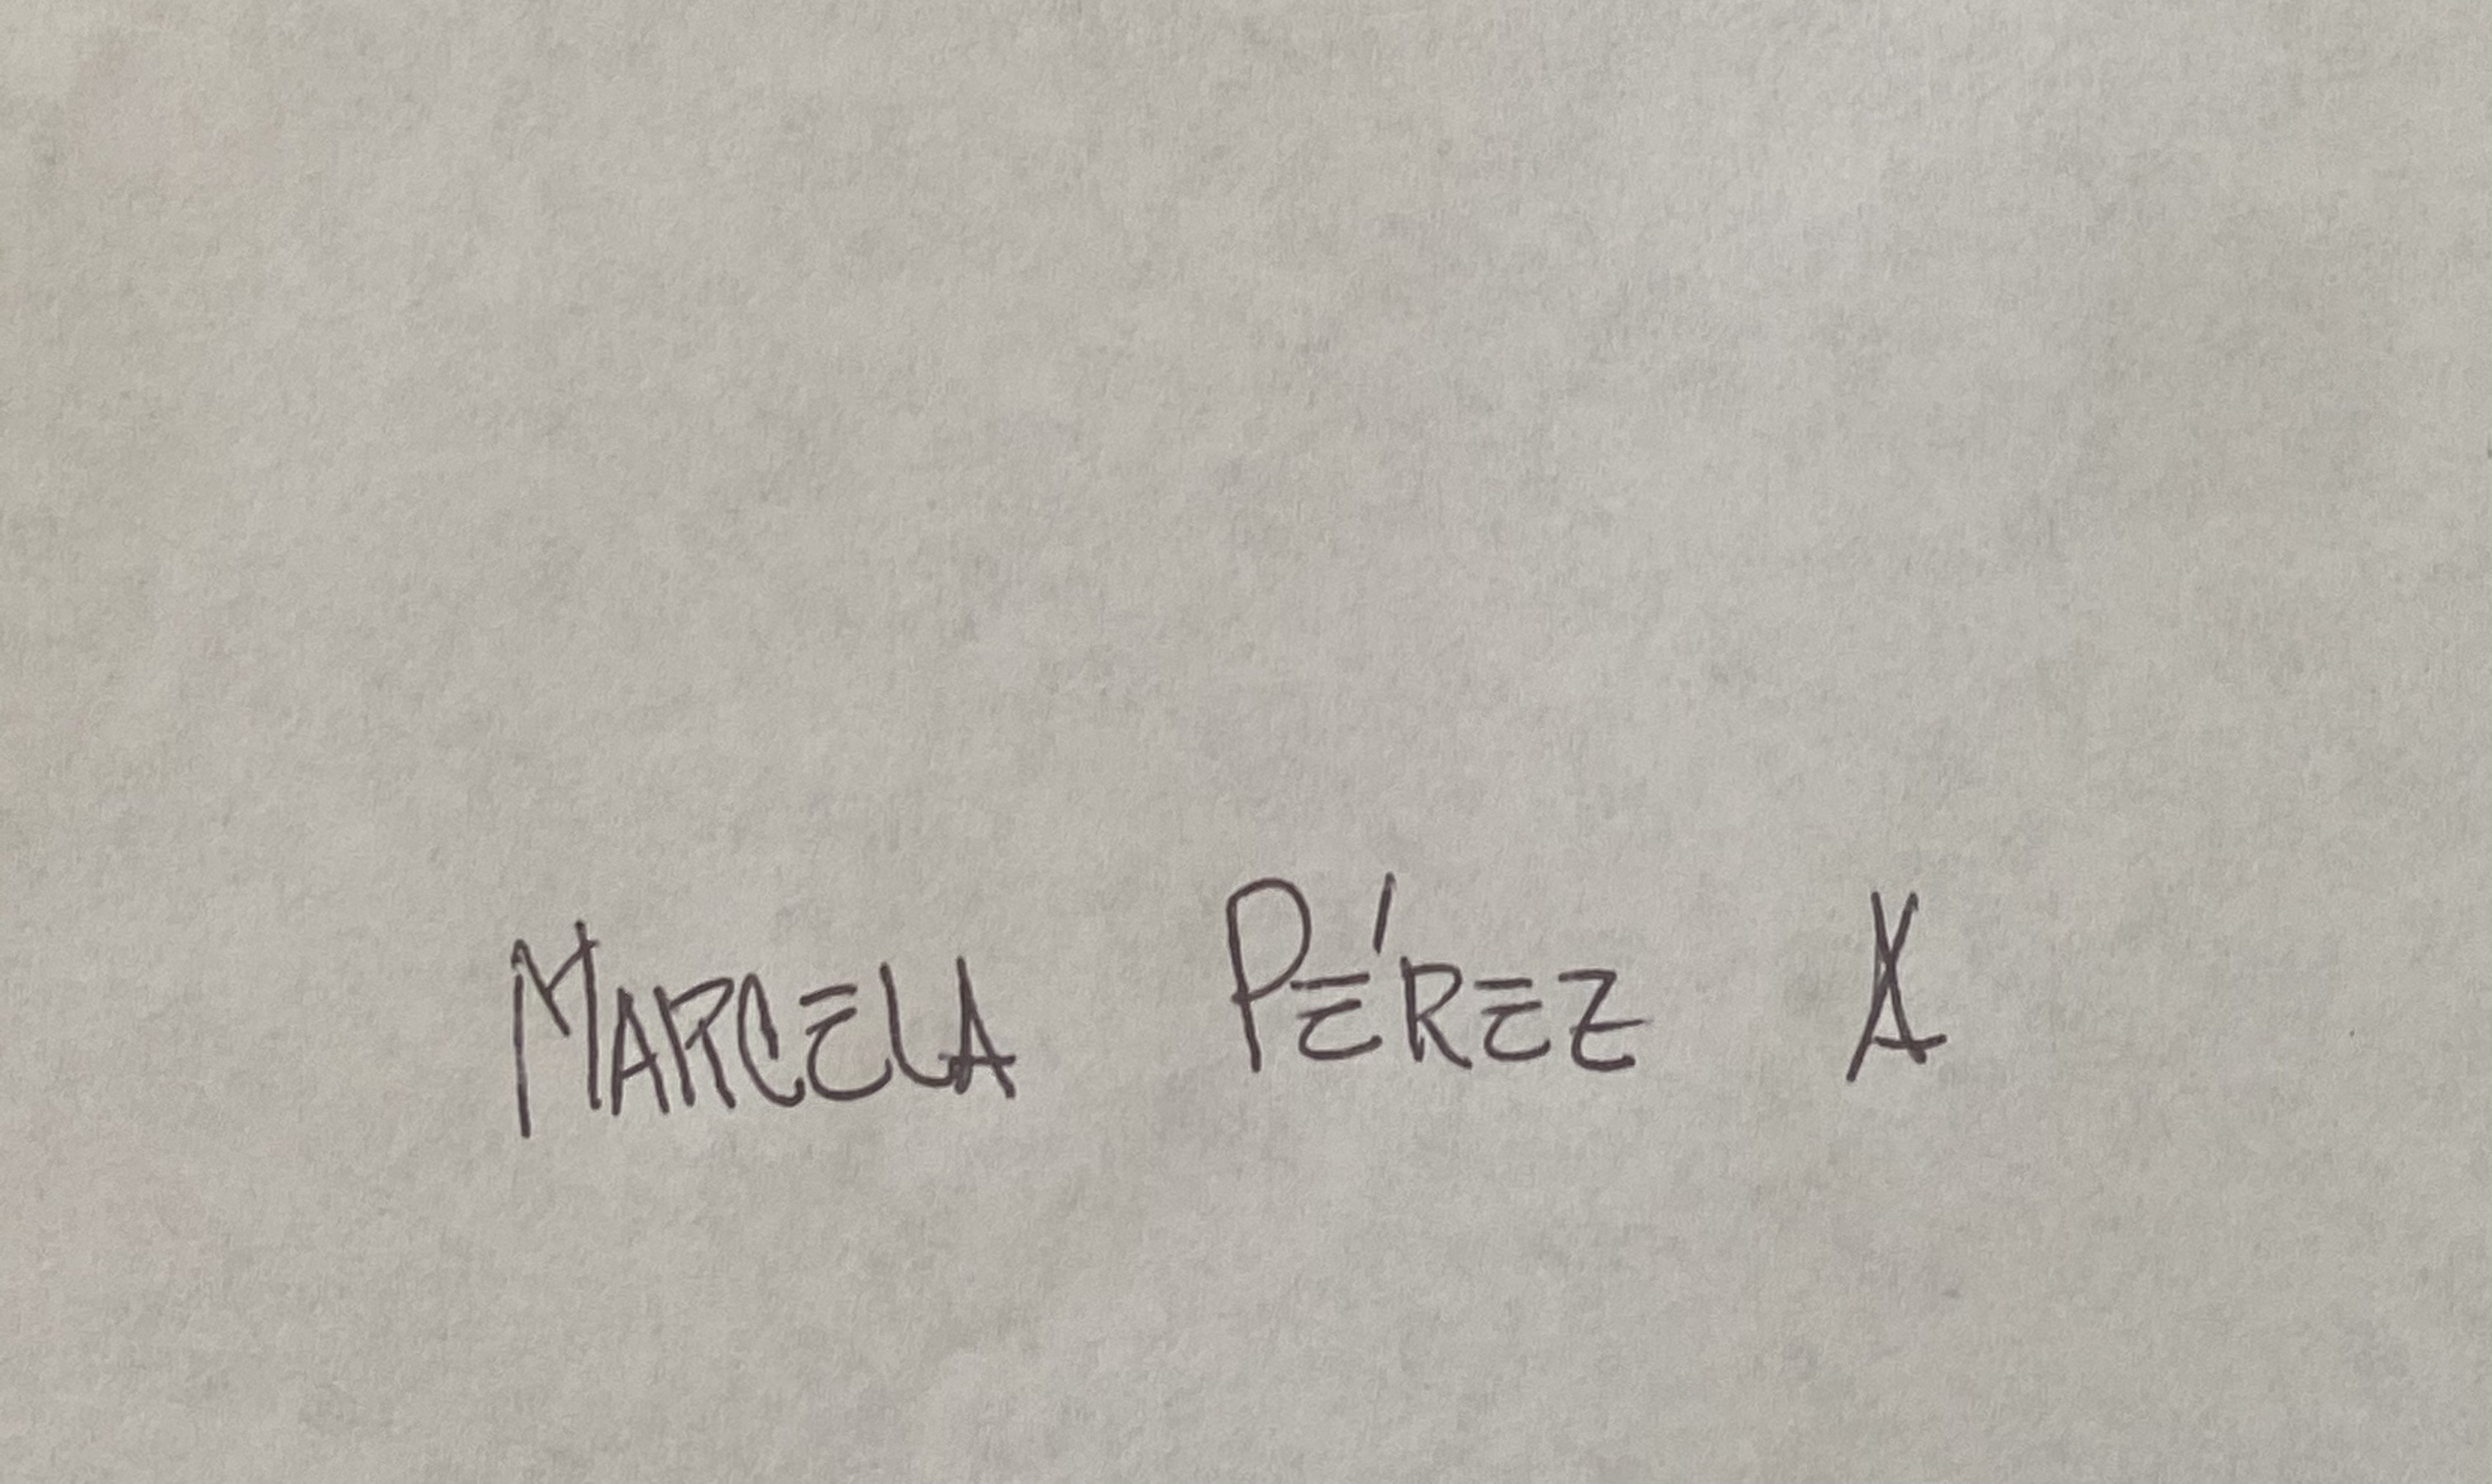 MARCELA PÉREZ A